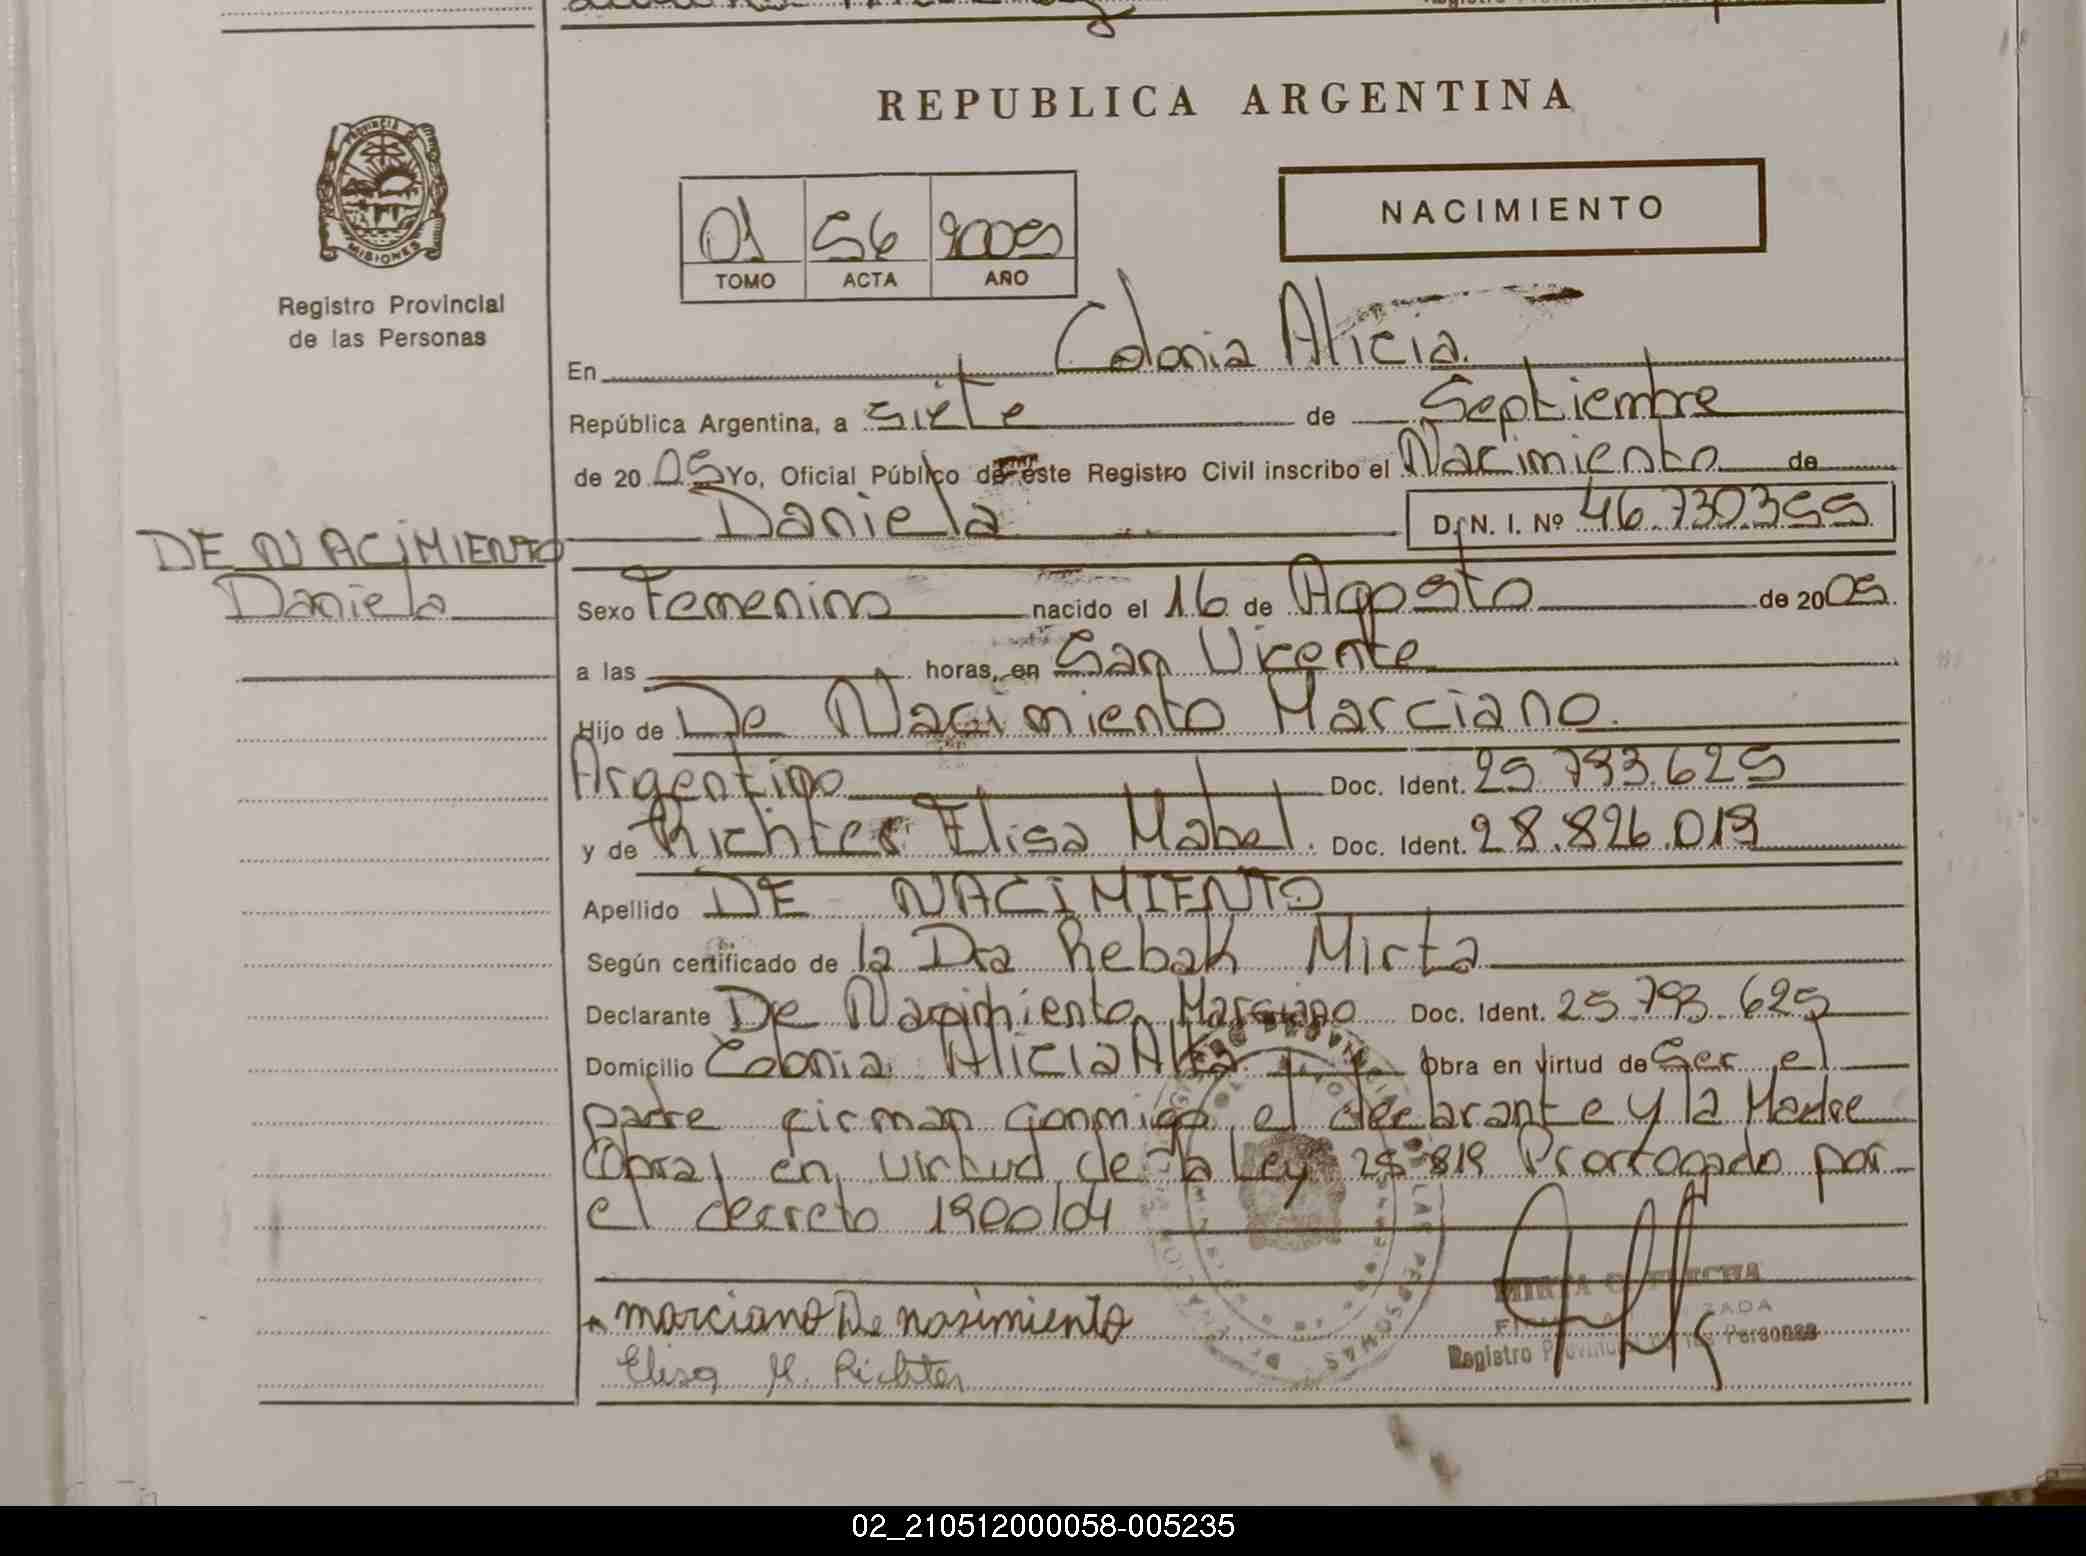 REPUBLICA ARGENTINA
PROVINCIA DE
MISIONES
Registro Provincial
de las Personas
01 56 2005
TOMO ACTA AÑO
NACIMIENTO
En Colonia Alicia.
República Argentina, a siete de Septiembre
de 20 05 Yo, Oficial Público de este Registro Civil inscribo el Nacimiento de
Daniela D. N. I. Nº 46.730.355
DE NACIMIENTO
Daniela
Sexo Femenino nacido el 16 de Agosto de 2005
a las horas, en San Vicente
Hijo de De Nacimiento Marciano.
Argentino Doc. Ident. 25.793.625
y de Richter Elisa Mabel. Doc. Ident. 28.826.019
Apellido DE NACIMIENTO
Según certificado de la Dra Rebak Mirta
Declarante De Nacimiento Marciano Doc. Ident. 25.793.625
Domicilio Colonia Alicia Alta. Obra en virtud de Ser el
padre firman conmigo el declarante y la Madre
Obra en virtud de la Ley 25.819 Prorrogado por
el decreto 1900/04
marciano De nasimiento
Elisa M. Richter
Registro Personas
02_210512000058-005235